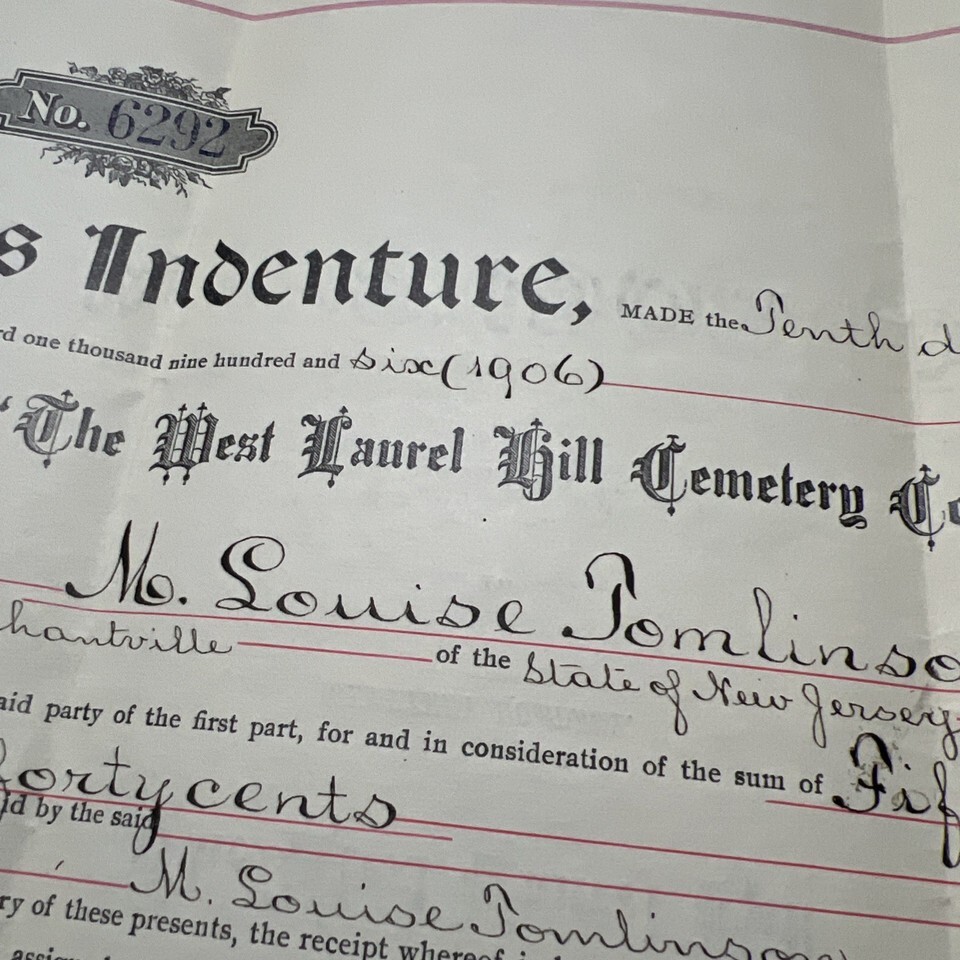 No. 6292
s Indenture, MADE the Tenth d
rd one thousand nine hundred and six (1906)
"The West Laurel Hill Cemetery Co
M. Louise Tomlinso
hantville of the State of New Jersey
aid party of the first part, for and in consideration of the sum of Fif
forty cents
id by the said
M. Louise Tomlinson
ry of these presents, the receipt whereof